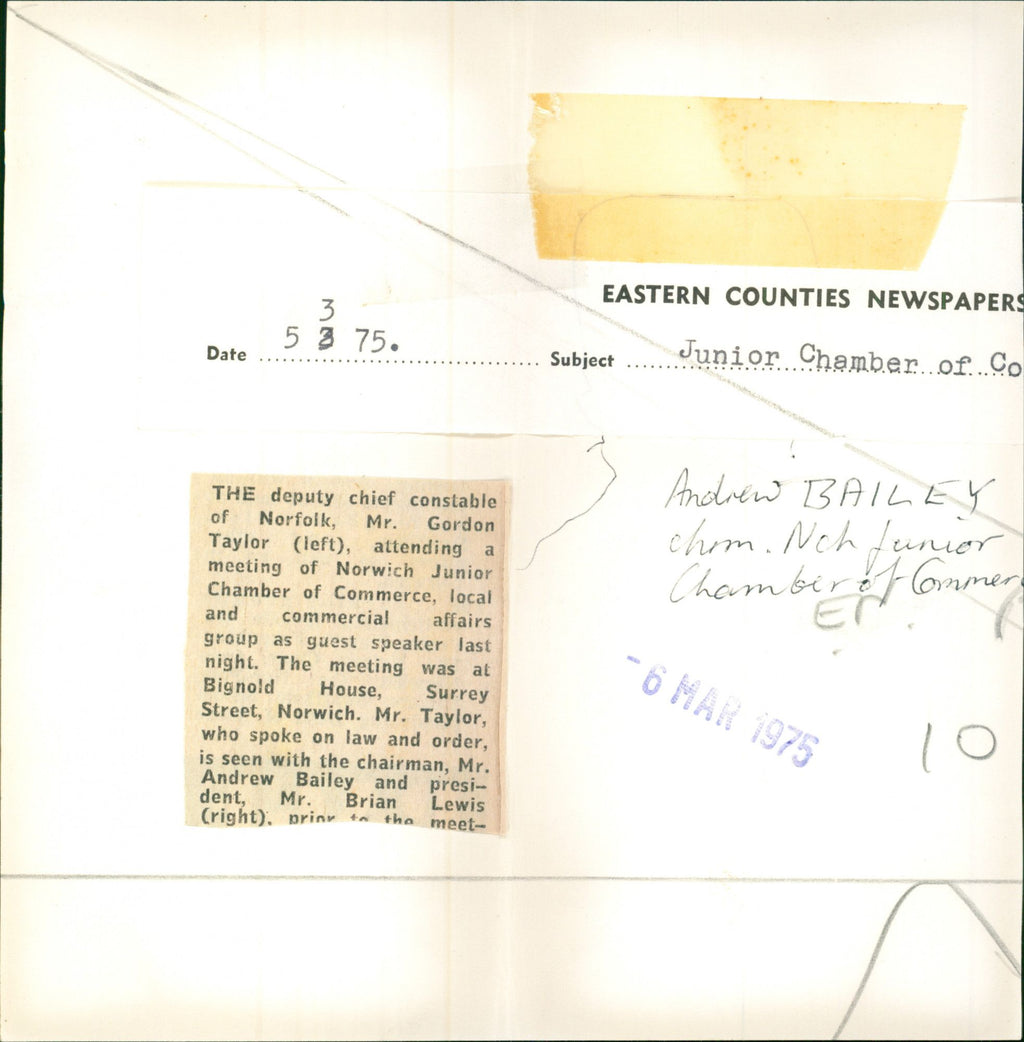 EASTERN COUNTIES NEWSPAPERS
3
Date 5 3 75.
Subject Junior Chamber of Co
THE deputy chief constable
of Norfolk, Mr. Gordon
Taylor (left), attending a
meeting of Norwich Junior
Chamber of Commerce, local
and commercial affairs
group as guest speaker last
night. The meeting was at
Bignold House, Surrey
Street, Norwich. Mr. Taylor,
who spoke on law and order,
is seen with the chairman, Mr.
Andrew Bailey and presi-
dent, Mr. Brian Lewis
(right), prior to the meet-
Andrew BAILEY
chm. Nch Junior
Chamber of Commer
-6 MAR 1975
10